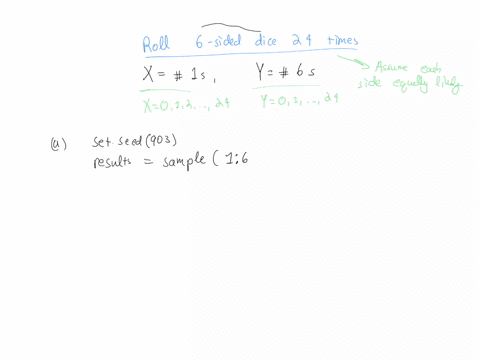 Roll 6-sided dice 24 times
X = # 1s, Y = # 6s
→ Assume each side equally likely
X=0,1,2,...,24 Y=0,1,...,24
(a) set.seed(903)
results = sample ( 1:6